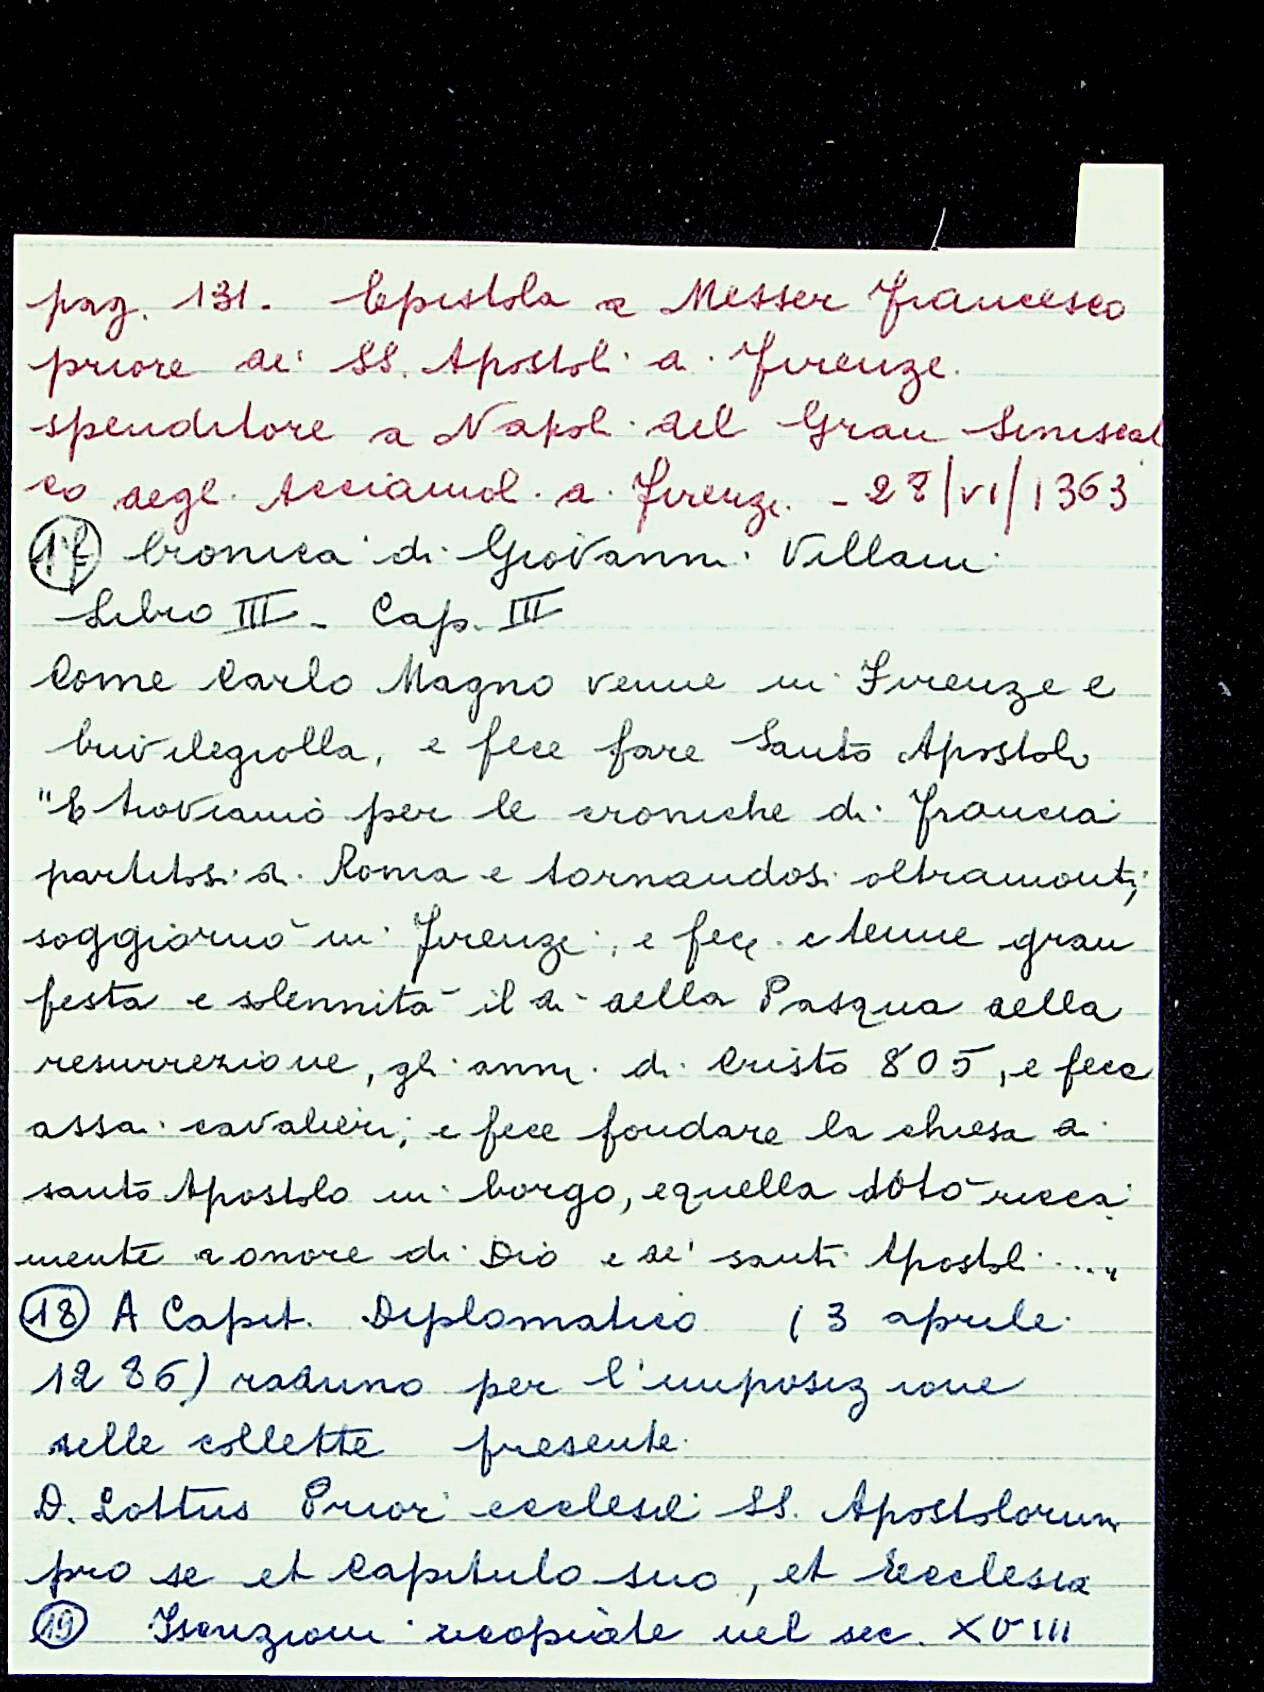 pag. 131. Epistola a Messer Francesco
priore dei SS. Apostoli di Firenze.
spenditore a Napoli del Gran Siniscal
co degli Acciaiuoli di Firenze - 28/VI/1363
17 Cronica di Giovanni Villani
Libro III - Cap. III
Come Carlo Magno venne in Firenze e
brivilegiolla, e fece fare Santo Apostolo
"E troviamo per le croniche di Francia
partitosi di Roma e tornandosi oltramonti,
soggiornò in Firenze, e fece e tenne gran
festa e solennità il di della Pasqua della
resurrezione, gli anni di Cristo 805, e fece
assai cavalieri, e fece fondare la chiesa di
santo Apostolo in borgo, e quella dotò ricca
mente a onore di Dio e de' santi Apostoli ...."
18 A Capit. Diplomatico (3 aprile
1286) raduno per l'imposizione
delle collette presente
D. Lottus Prior ecclesie SS. Apostolorum
pro se et Capitulo suo, et Ecclesia
19 Iscrizioni ricopiate nel sec. XVIII